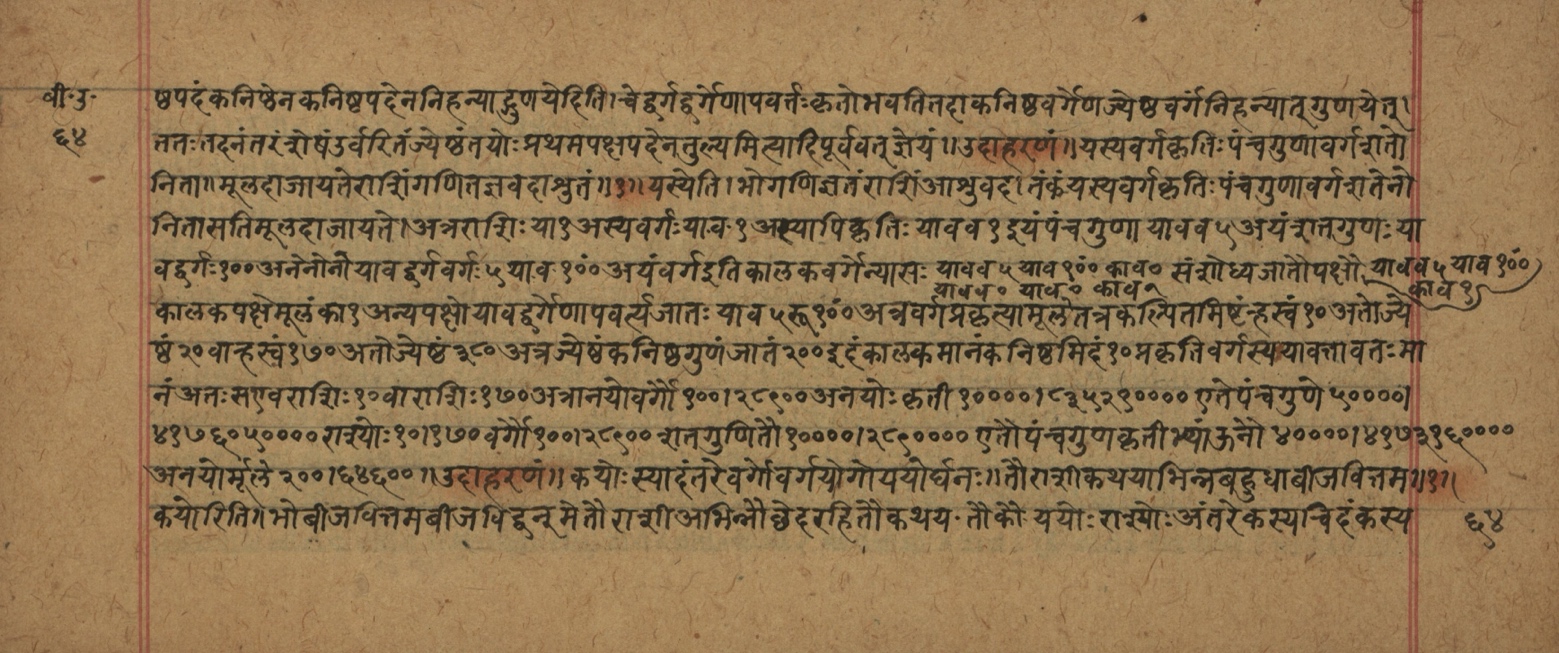 बी·उ·
६४
ष्ठपदंकनिष्ठेनकनिष्टपदेननिहन्याद्गुणयेदिति।चेद्वर्गद्वर्गेणापवर्त्तःकृतोभवतितदाकनिष्ठवर्गेणज्येष्ठवर्गंनिहन्यात्गुणयेत्।
ततःतदनंतरंशेषंउर्वरितंज्येष्ठंतयोःप्रथमपक्षपदेनतुल्यमित्यादिपूर्ववत्ज्ञेयं॥उदाहरणं॥यस्यवर्गकृतिःपंचगुणावर्गशतो
निता॥मूलदाजायतेराशिंगणितज्ञवदाशुतं॥१॥यस्येति।भोगणितज्ञतंराशिंआशुवद।तंकंयस्यवर्गकृतिःपंचगुणावर्गशतेनो
नितासतिमूलदाजायते।अत्रराशिःया१अस्यवर्गःयाव·१अस्यापिकृतिःयावव१इयंपंचगुणायावव५अयंशतगुणःया
वद्वर्गः१००अनेनोनोयावद्वर्गवर्गः५याव·१०ं०अयंवर्गइतिकालकवर्गेन्यासः यावव५याव१०ं०काव० संशोध्यजातौपक्षौ यावव५याव१०ं०
यावव०याव०काव१ काव१
कालकपक्षेमूलंका१अन्यपक्षोयावद्वर्गेणापवर्त्यजातःयाव५रू१०ं०अत्रवर्गप्रकृत्यामूलेतत्रकल्पितमिष्टंन्हस्वं१०अतोज्ये
ष्ठं२०वान्हस्वं१७०अतोज्येष्ठं३८०अत्रज्येष्ठंकनिष्ठगुणंजातं२००इदंकालकमानंकनिष्ठमिदं१०प्रकृतिवर्गस्ययावत्तावतःमा
नंअतःसएवराशिः१०वाराशिः१७०अत्रानयोवर्गौ१००।२८९००अनयोःकृती१००००।८३५२१००००एतेपंचगुणे५००००।
४१७६०५००००राश्योः१०।१७०वर्गौ१००।२८९००शतगुणितौ१००००।२८९००००एतौपंचगुणकृतीभ्यांऊनौ४००००।४१७३१६००००
अनयोर्मूले२००।६४६००॥उदाहरणं॥कयोःस्यादंतरेवर्गोवर्गयोगोययोर्घनः॥तौराशीकथयाभिन्नबहुधाबीजवित्तम॥१॥
कयोरिति॥भोबीजवित्तमबीजविद्वन्मेतौराशीअभिन्नौछेदरहितौकथय·तौकौ·ययोःराश्योःअंतरेकस्यचिदंकस्य
६४